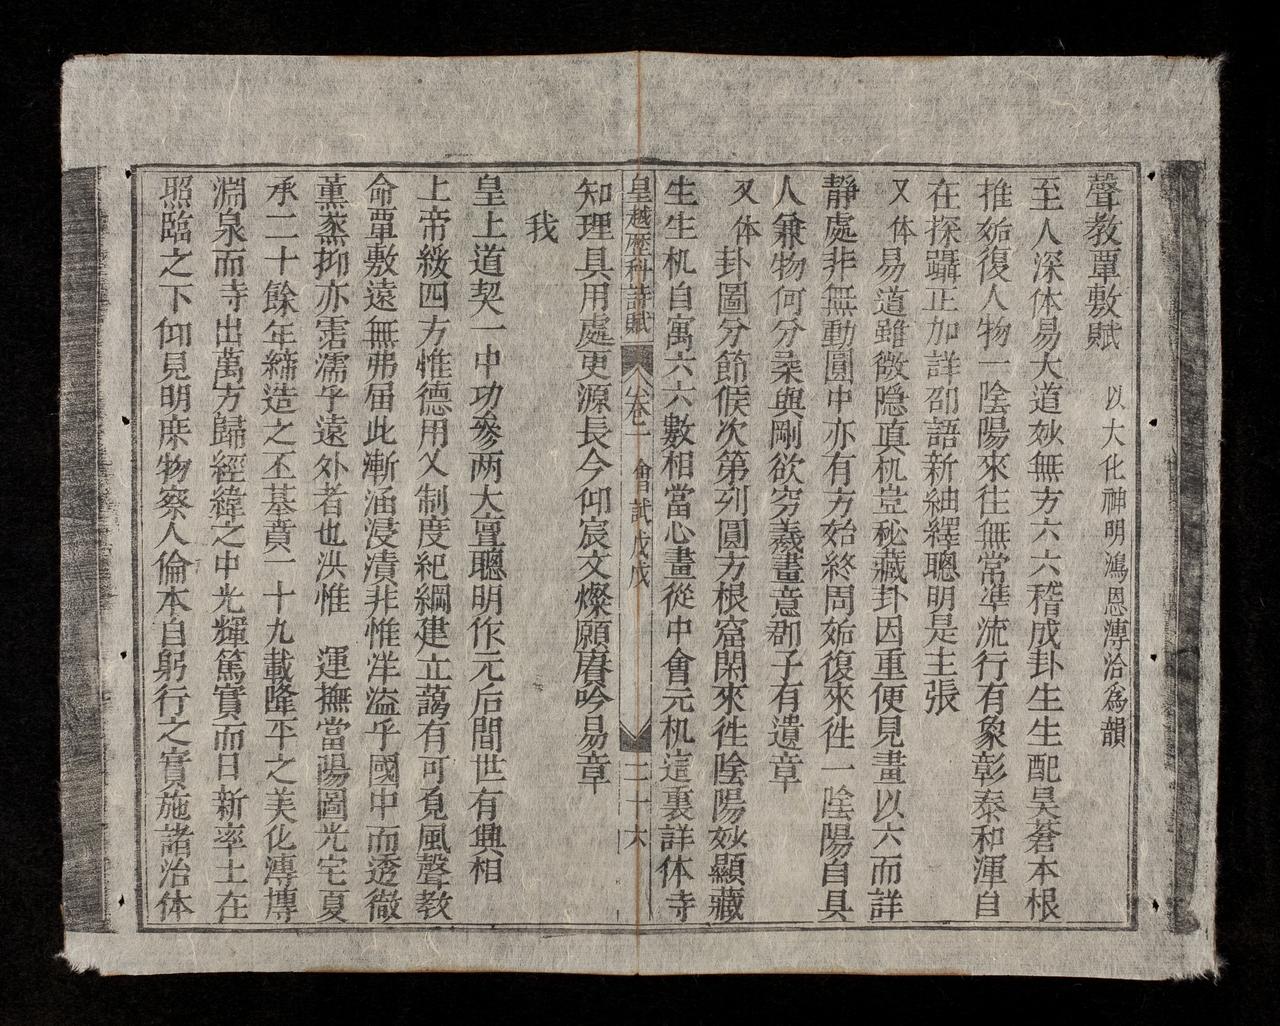 聲教覃敷賦 以大化神明鴻恩溥洽爲韻
至人深体易大道妙無方六六稽成卦生生配昊蒼本根
推姤復人物一陰陽來往無常準流行有象彰泰和渾自
在探躡正加詳邵語新紬繹聰明是主張
又体 易道雖微隐真机豈秘藏卦因重便見畫以六而詳
靜處非無動圓中亦有方始終周姤復來徃一陰陽自具
人兼物何分柔與剛欲穷羲畫意郡子有遺章
又体 卦圖分節候次第列圓方根窟閑來徃陰陽妙顯藏
生生机自寓六六數相當心畫從中會元机這裏詳体寺
知理具用處更源長今仰宸文燦願賡吟易章
皇越歷科詩賦 卷一 會試戊戌 二十六
我
皇上道契一中功參两大亶聰明作元后間世有興相
上帝綏四方惟德用乂制度紀綱建立藹有可覓風聲教
命覃敷遠無弗届此漸涵浸漬非惟洋溢乎國中而透徹
薰蒸抑亦霑濡乎遠外者也洪惟 運撫當陽圖光宅夏
承二十餘年締造之丕基賁一十九載隆平之美化溥博
淵泉而寺出萬方歸經緯之中光輝篤實而日新率土在
照臨之下仰見明庶物察人倫本自躬行之實施諸治体